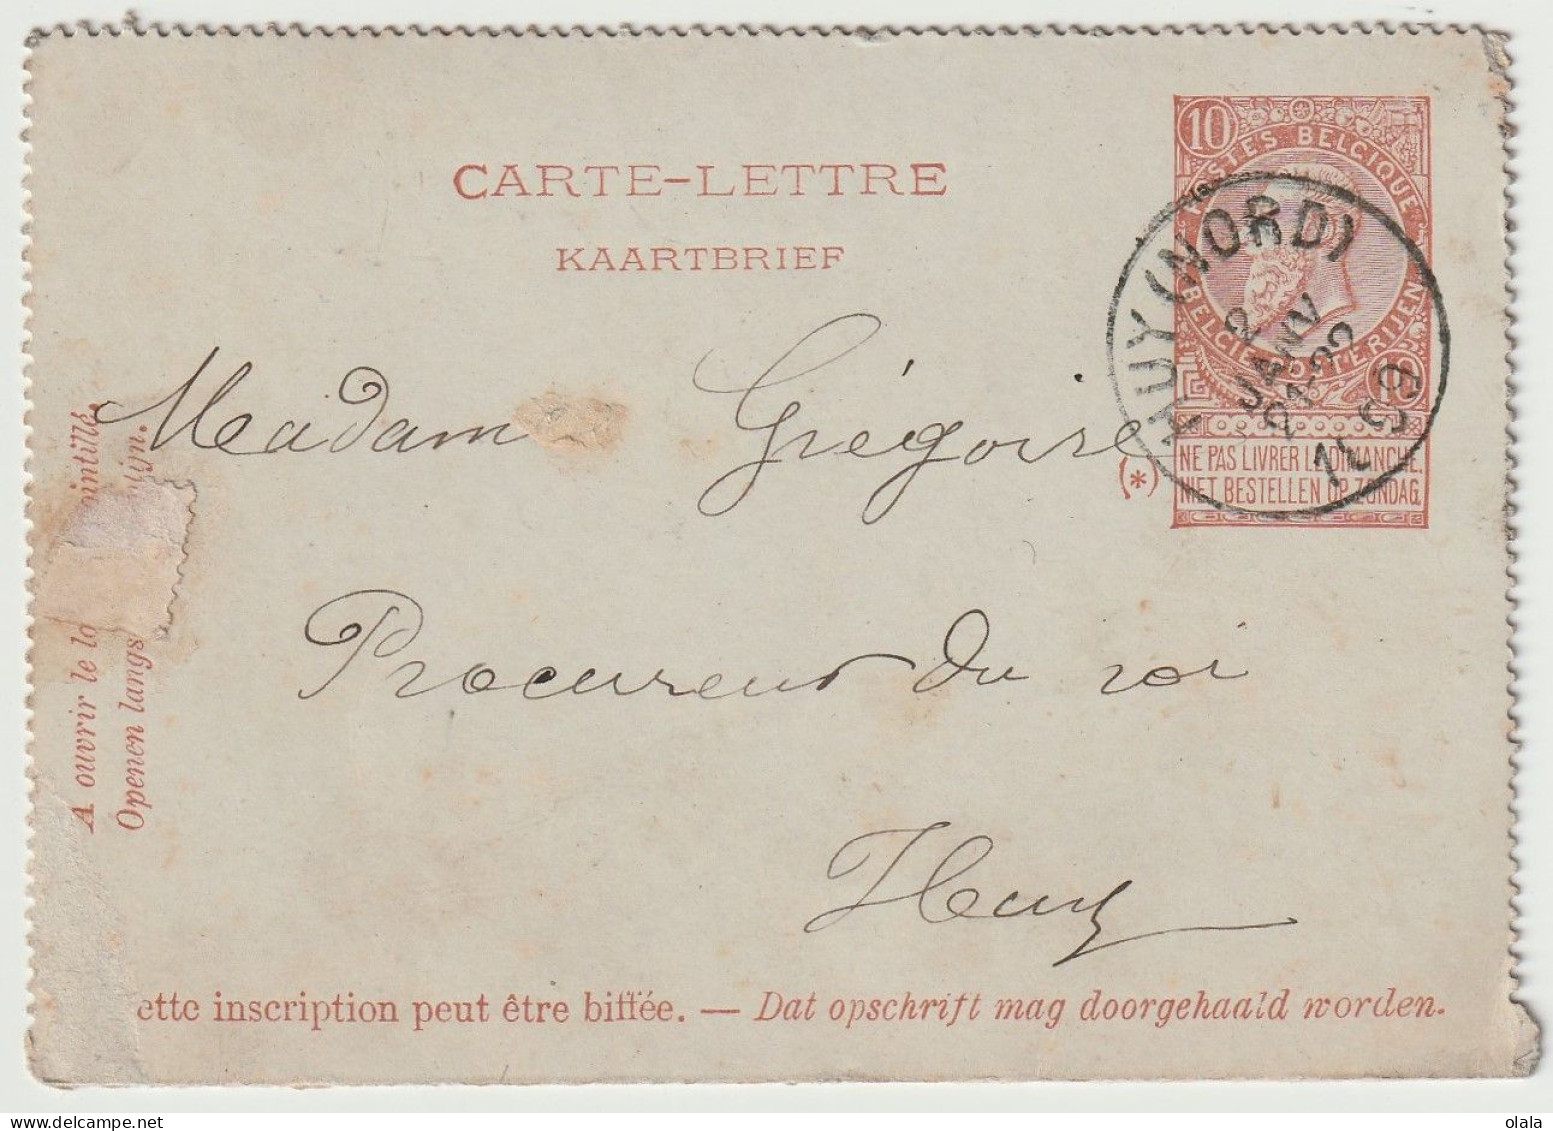 CARTE-LETTRE
KAARTBRIEF
10
POSTES BELGIQUE
BELGIE POSTERIJEN
10
NE PAS LIVRER LE DIMANCHE.
NIET BESTELLEN OP ZONDAG.
(*)
HUY (NORD)
2
JANV
21-22
99
Madam Grégoire
Procureur du roi
Huy
A ouvrir le
ointillé.
Openen langs
ijn.
ette inscription peut être biffée. — Dat opschrift mag doorgehaald worden.
olala